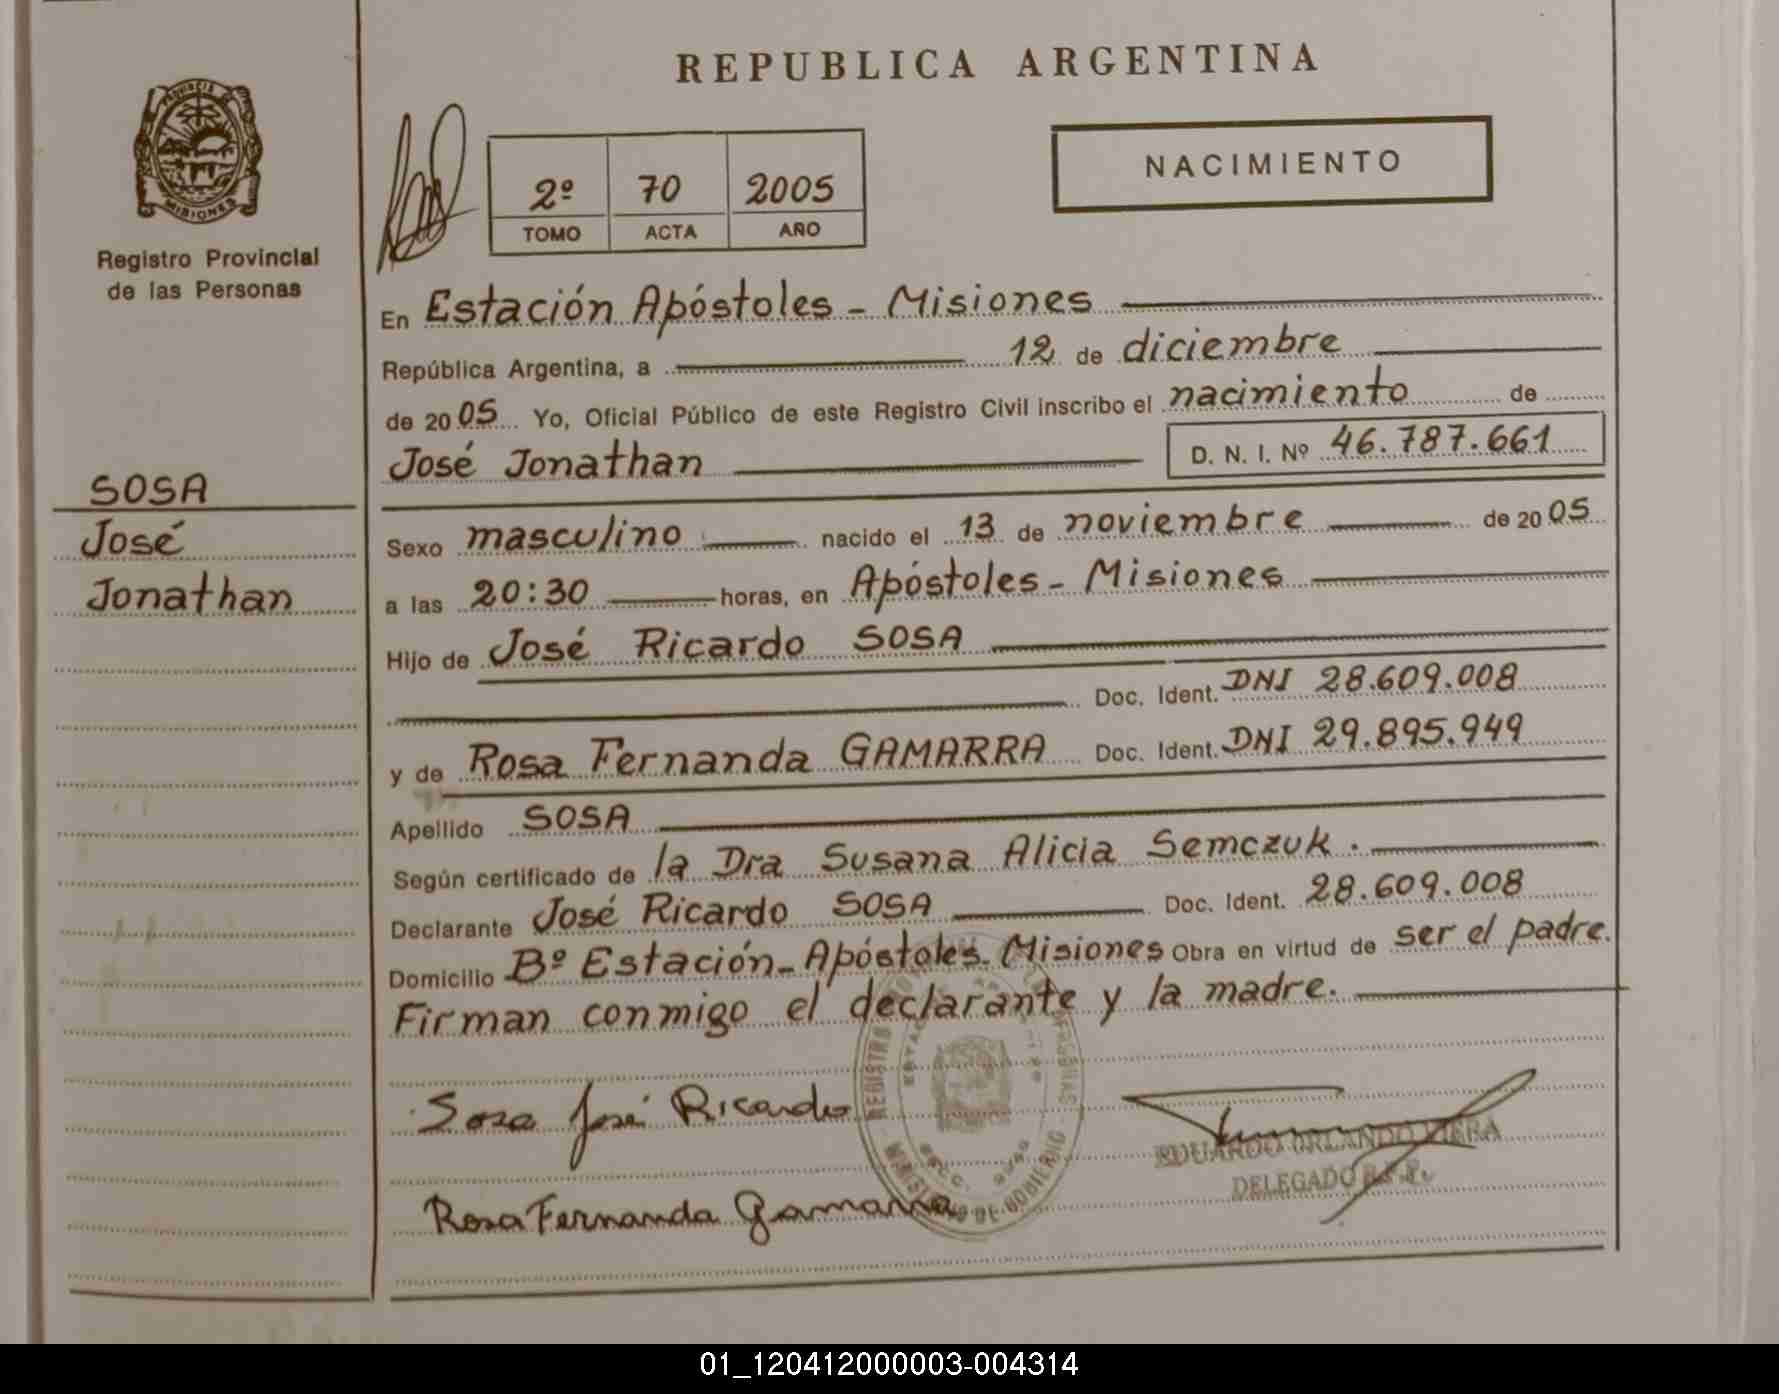 REPUBLICA ARGENTINA
PROVINCIA DE
MISIONES
Registro Provincial
de las Personas
2º 70 2005
TOMO ACTA AÑO
NACIMIENTO
En Estación Apóstoles - Misiones
República Argentina, a 12 de diciembre
de 2005 Yo, Oficial Público de este Registro Civil inscribo el nacimiento de
José Jonathan D. N. I. Nº 46.787.661
SOSA
José
Jonathan
Sexo masculino nacido el 13 de noviembre de 2005
a las 20:30 horas, en Apóstoles - Misiones
Hijo de José Ricardo SOSA
Doc. Ident. DNI 28.609.008
y de Rosa Fernanda GAMARRA Doc. Ident. DNI 29.895.949
Apellido SOSA
Según certificado de la Dra Susana Alicia Semczuk.
Declarante José Ricardo SOSA Doc. Ident. 28.609.008
Domicilio Bº Estación - Apóstoles - Misiones Obra en virtud de ser el padre.
Firman conmigo el declarante y la madre.
Sosa José Ricardo
Rosa Fernanda Gamarra
EDUARDO ORLANDO VIERA
DELEGADO
01_120412000003-004314